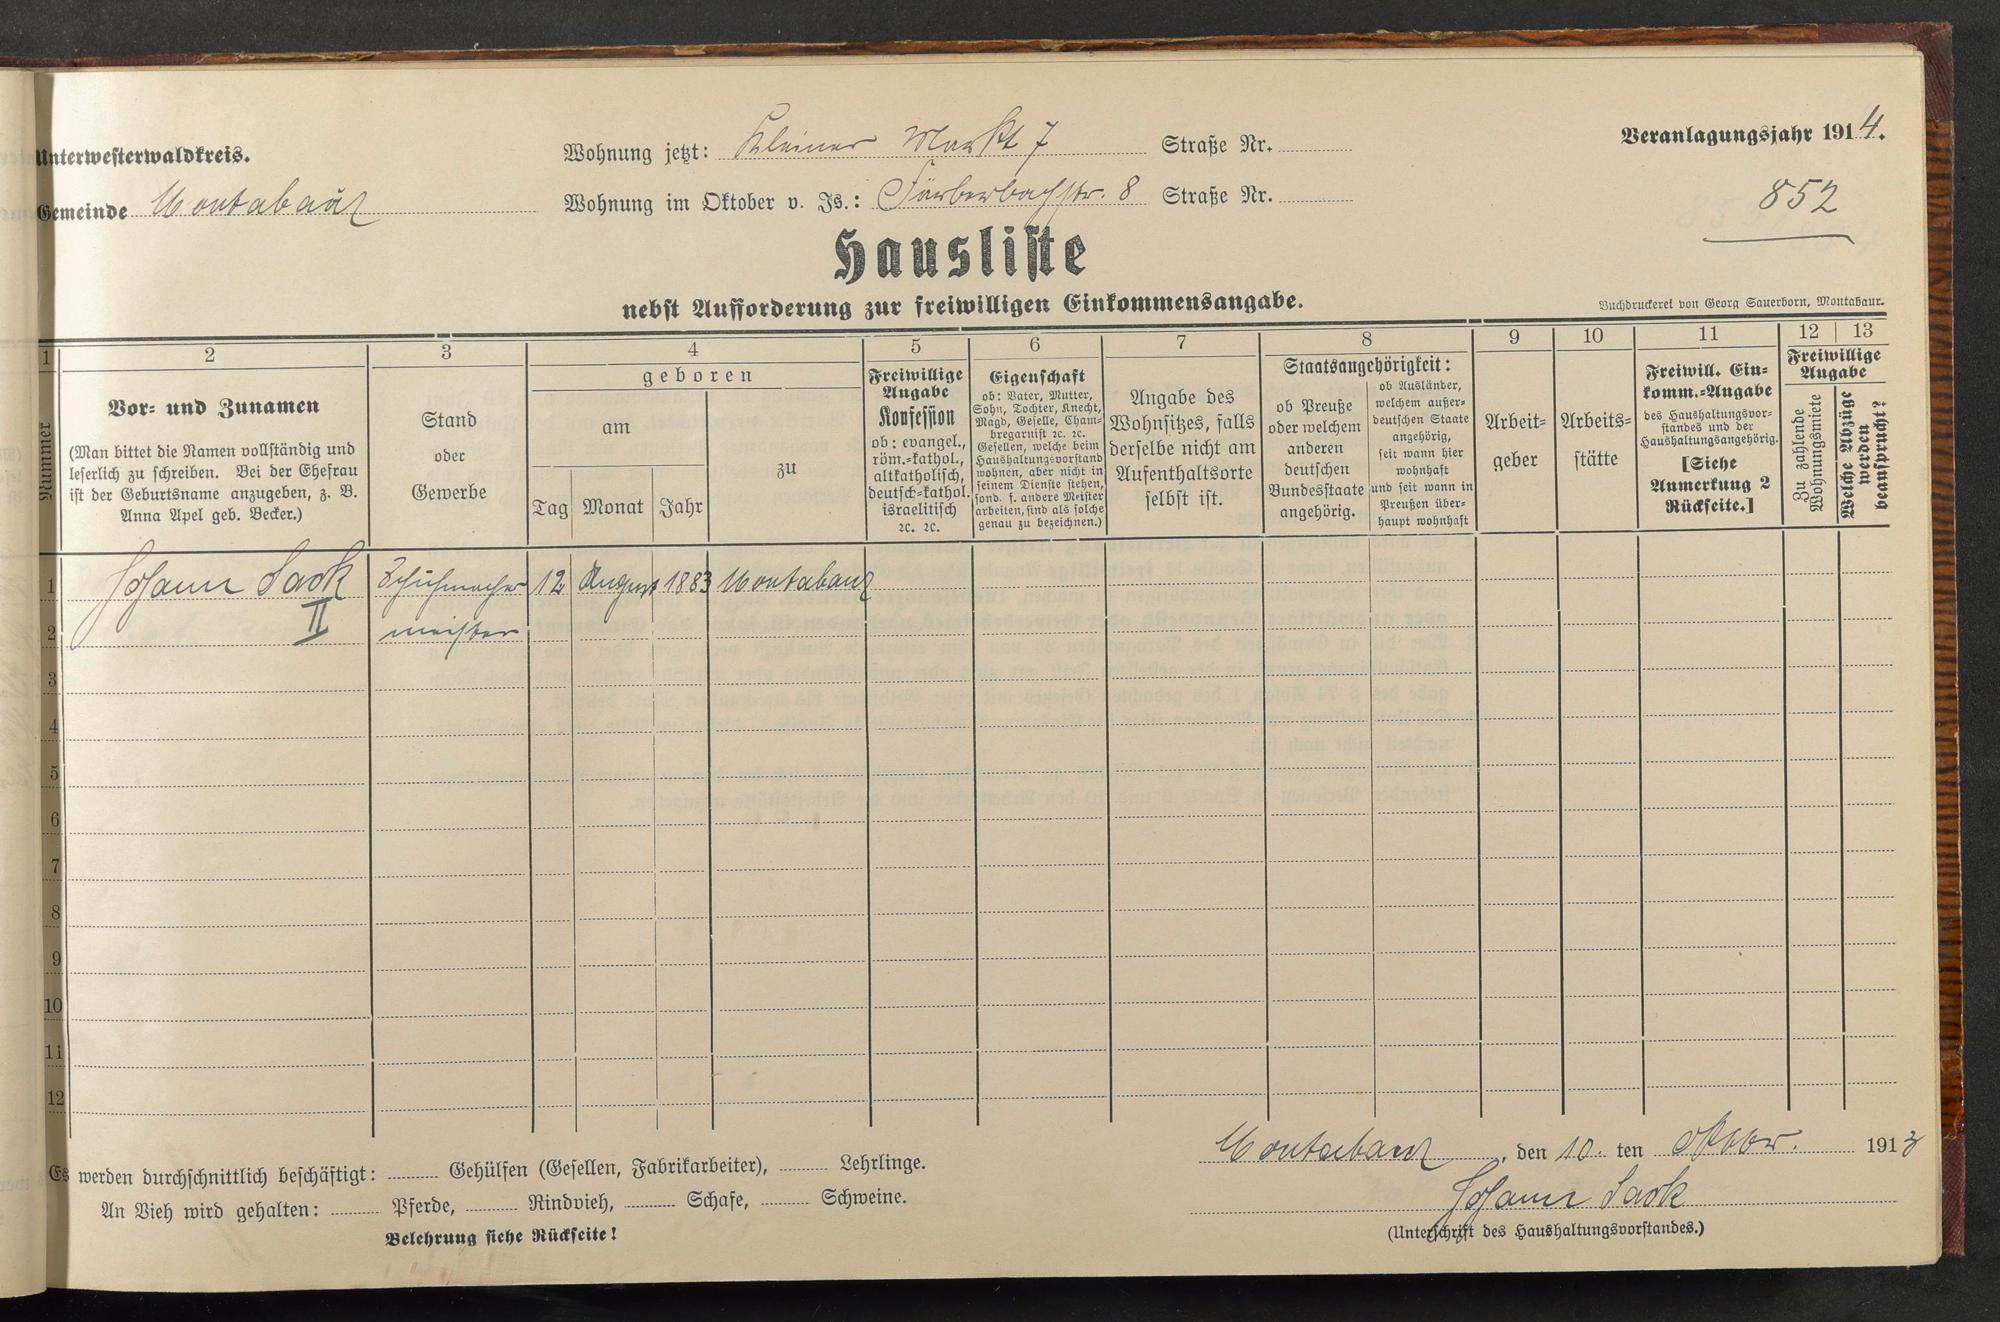 Unterwesterwaldkreis.
Wohnung jetzt: Kleiner Markt 7 Straße Nr.
Veranlagungsjahr 1914.
Gemeinde Montabaur
Wohnung im Oktober v. Js.: Färberbachstr. 8 Straße Nr.
852
Hausliste
nebst Aufforderung zur freiwilligen Einkommensangabe.
Buchdruckerei von Georg Sauerborn, Montabaur.
1 2 3 4 5 6 7 8 9 10 11 12 13
Nummer
Vor- und Zunamen
(Man bittet die Namen vollständig und
leserlich zu schreiben. Bei der Ehefrau
ist der Geburtsname anzugeben, z. B.
Anna Apel geb. Becker.)
Stand
oder
Gewerbe
geboren
am
Tag Monat Jahr
zu
Freiwillige
Angabe
Konfession
ob: evangel.,
röm.-kathol.,
altkatholisch,
deutsch-kathol.
israelitisch
ꝛc. ꝛc.
Eigenschaft
ob: Vater, Mutter,
Sohn, Tochter, Knecht,
Magd, Geselle, Cham-
bregarnist ꝛc. ꝛc.
Gesellen, welche beim
Haushaltungsvorstand
wohnen, aber nicht in
seinem Dienste stehen,
sond. f. andere Meister
arbeiten, sind als solche
genau zu bezeichnen.)
Angabe des
Wohnsitzes, falls
derselbe nicht am
Aufenthaltsorte
selbst ist.
Staatsangehörigkeit:
ob Preuße
oder welchem
anderen
deutschen
Bundesstaate
angehörig.
ob Ausländer,
welchem außer-
deutschen Staate
angehörig,
seit wann hier
wohnhaft
und seit wann in
Preußen über-
haupt wohnhaft
Arbeit-
geber
Arbeits-
stätte
Freiwill. Ein-
komm.-Angabe
des Haushaltungsvor-
standes und der
Haushaltungsangehörig.
[Siehe
Anmerkung 2
Rückseite.]
Freiwillige
Angabe
Zu zahlende
Wohnungsmiete
Welche Abzüge
werden
beansprucht?
1 Johann Sack Schuhmacher 12 August 1883 Montabaur
2 II meister
3
4
5
6
7
8
9
10
11
12
Es werden durchschnittlich beschäftigt: Gehülfen (Gesellen, Fabrikarbeiter), Lehrlinge.
An Vieh wird gehalten: Pferde, Rindvieh, Schafe, Schweine.
Belehrung siehe Rückseite!
Montabaur, den 10. ten Oktbr. 1913
Johann Sack
(Unterschrift des Haushaltungsvorstandes.)